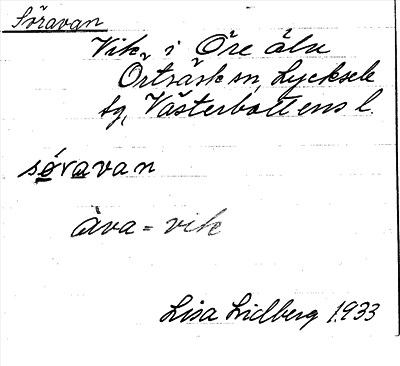 Söravan
Vik i Öre älv
Örträsk sn, Lycksele
tg, Västerbottens l.
søravan
åva = vik
Lisa Lidberg 1933